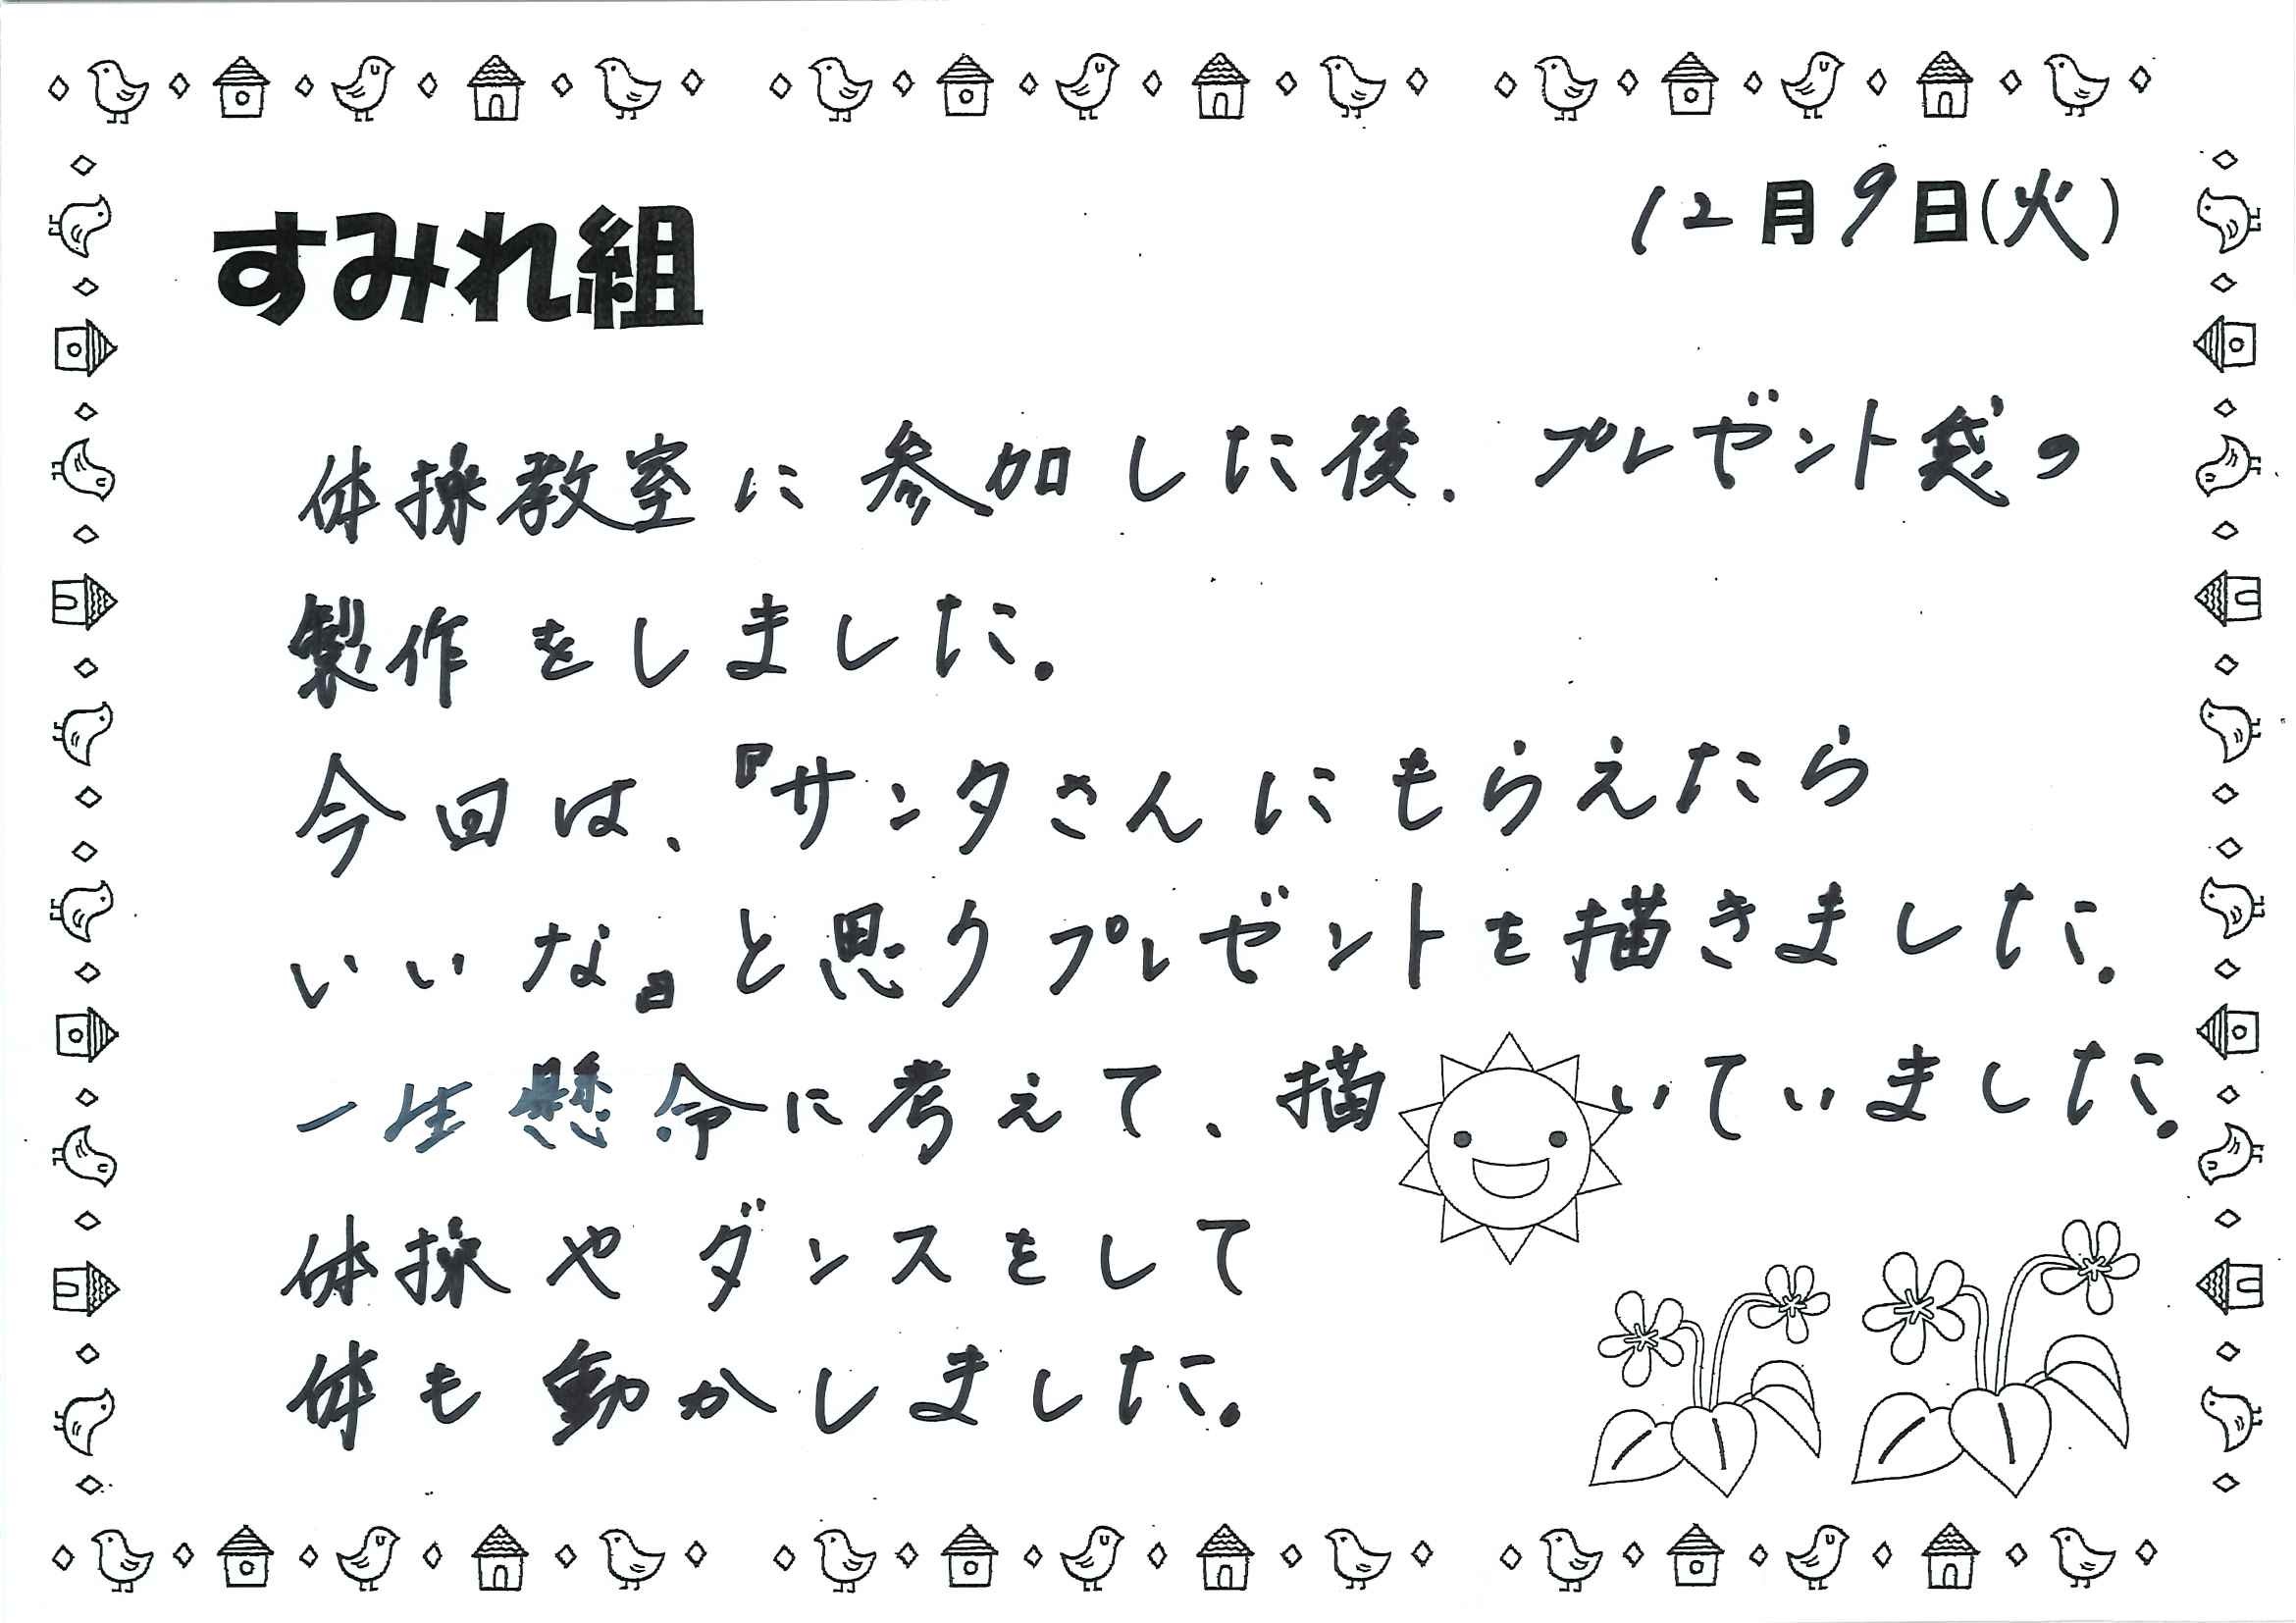 12月9日(火)
すみれ組
体操教室に参加した後、プレゼント袋の
製作をしました。
今回は、『サンタさんにもらえたら
いいな』と思うプレゼントを描きました。
一生懸命に考えて、描いていました。
体操やダンスをして
体も動かしました。